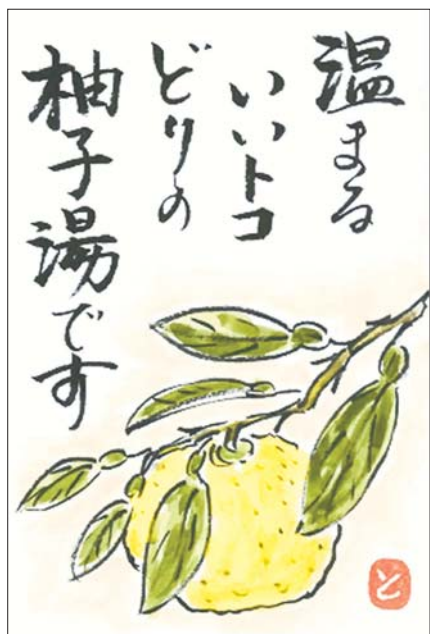 温まる
いいトコ
どりの
柚子湯です
と